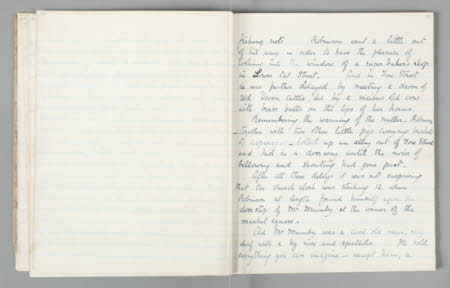 fishing nets. Robinson went a little out
of his way in order to have the pleasure of
looking into the window of a sugar baker's shop
in Lown Cat Street. And in Fore Street
he was further delayed by meeting a drove of
red Devon cattle led by a vicious old cow
with brass balls on the tips of her horns.
Remembering the warning of the mullet, Robinson
- together with two other little pigs carrying baskets
of asparagus - bolted up an alley out of Fore Street
and hid in a doorway until the noise of
bellowing and shouting had gone past.
After all these delays it was not surprising
that the church clock was striking 12 when
Robinson at length found himself upon the
doorstep of Mr Mumby at the corner of the
market square.
Old Mr Mumby was a civil old man, very
deaf with a big nose and spectacles. He sold
everything you can imagine - except ham, a